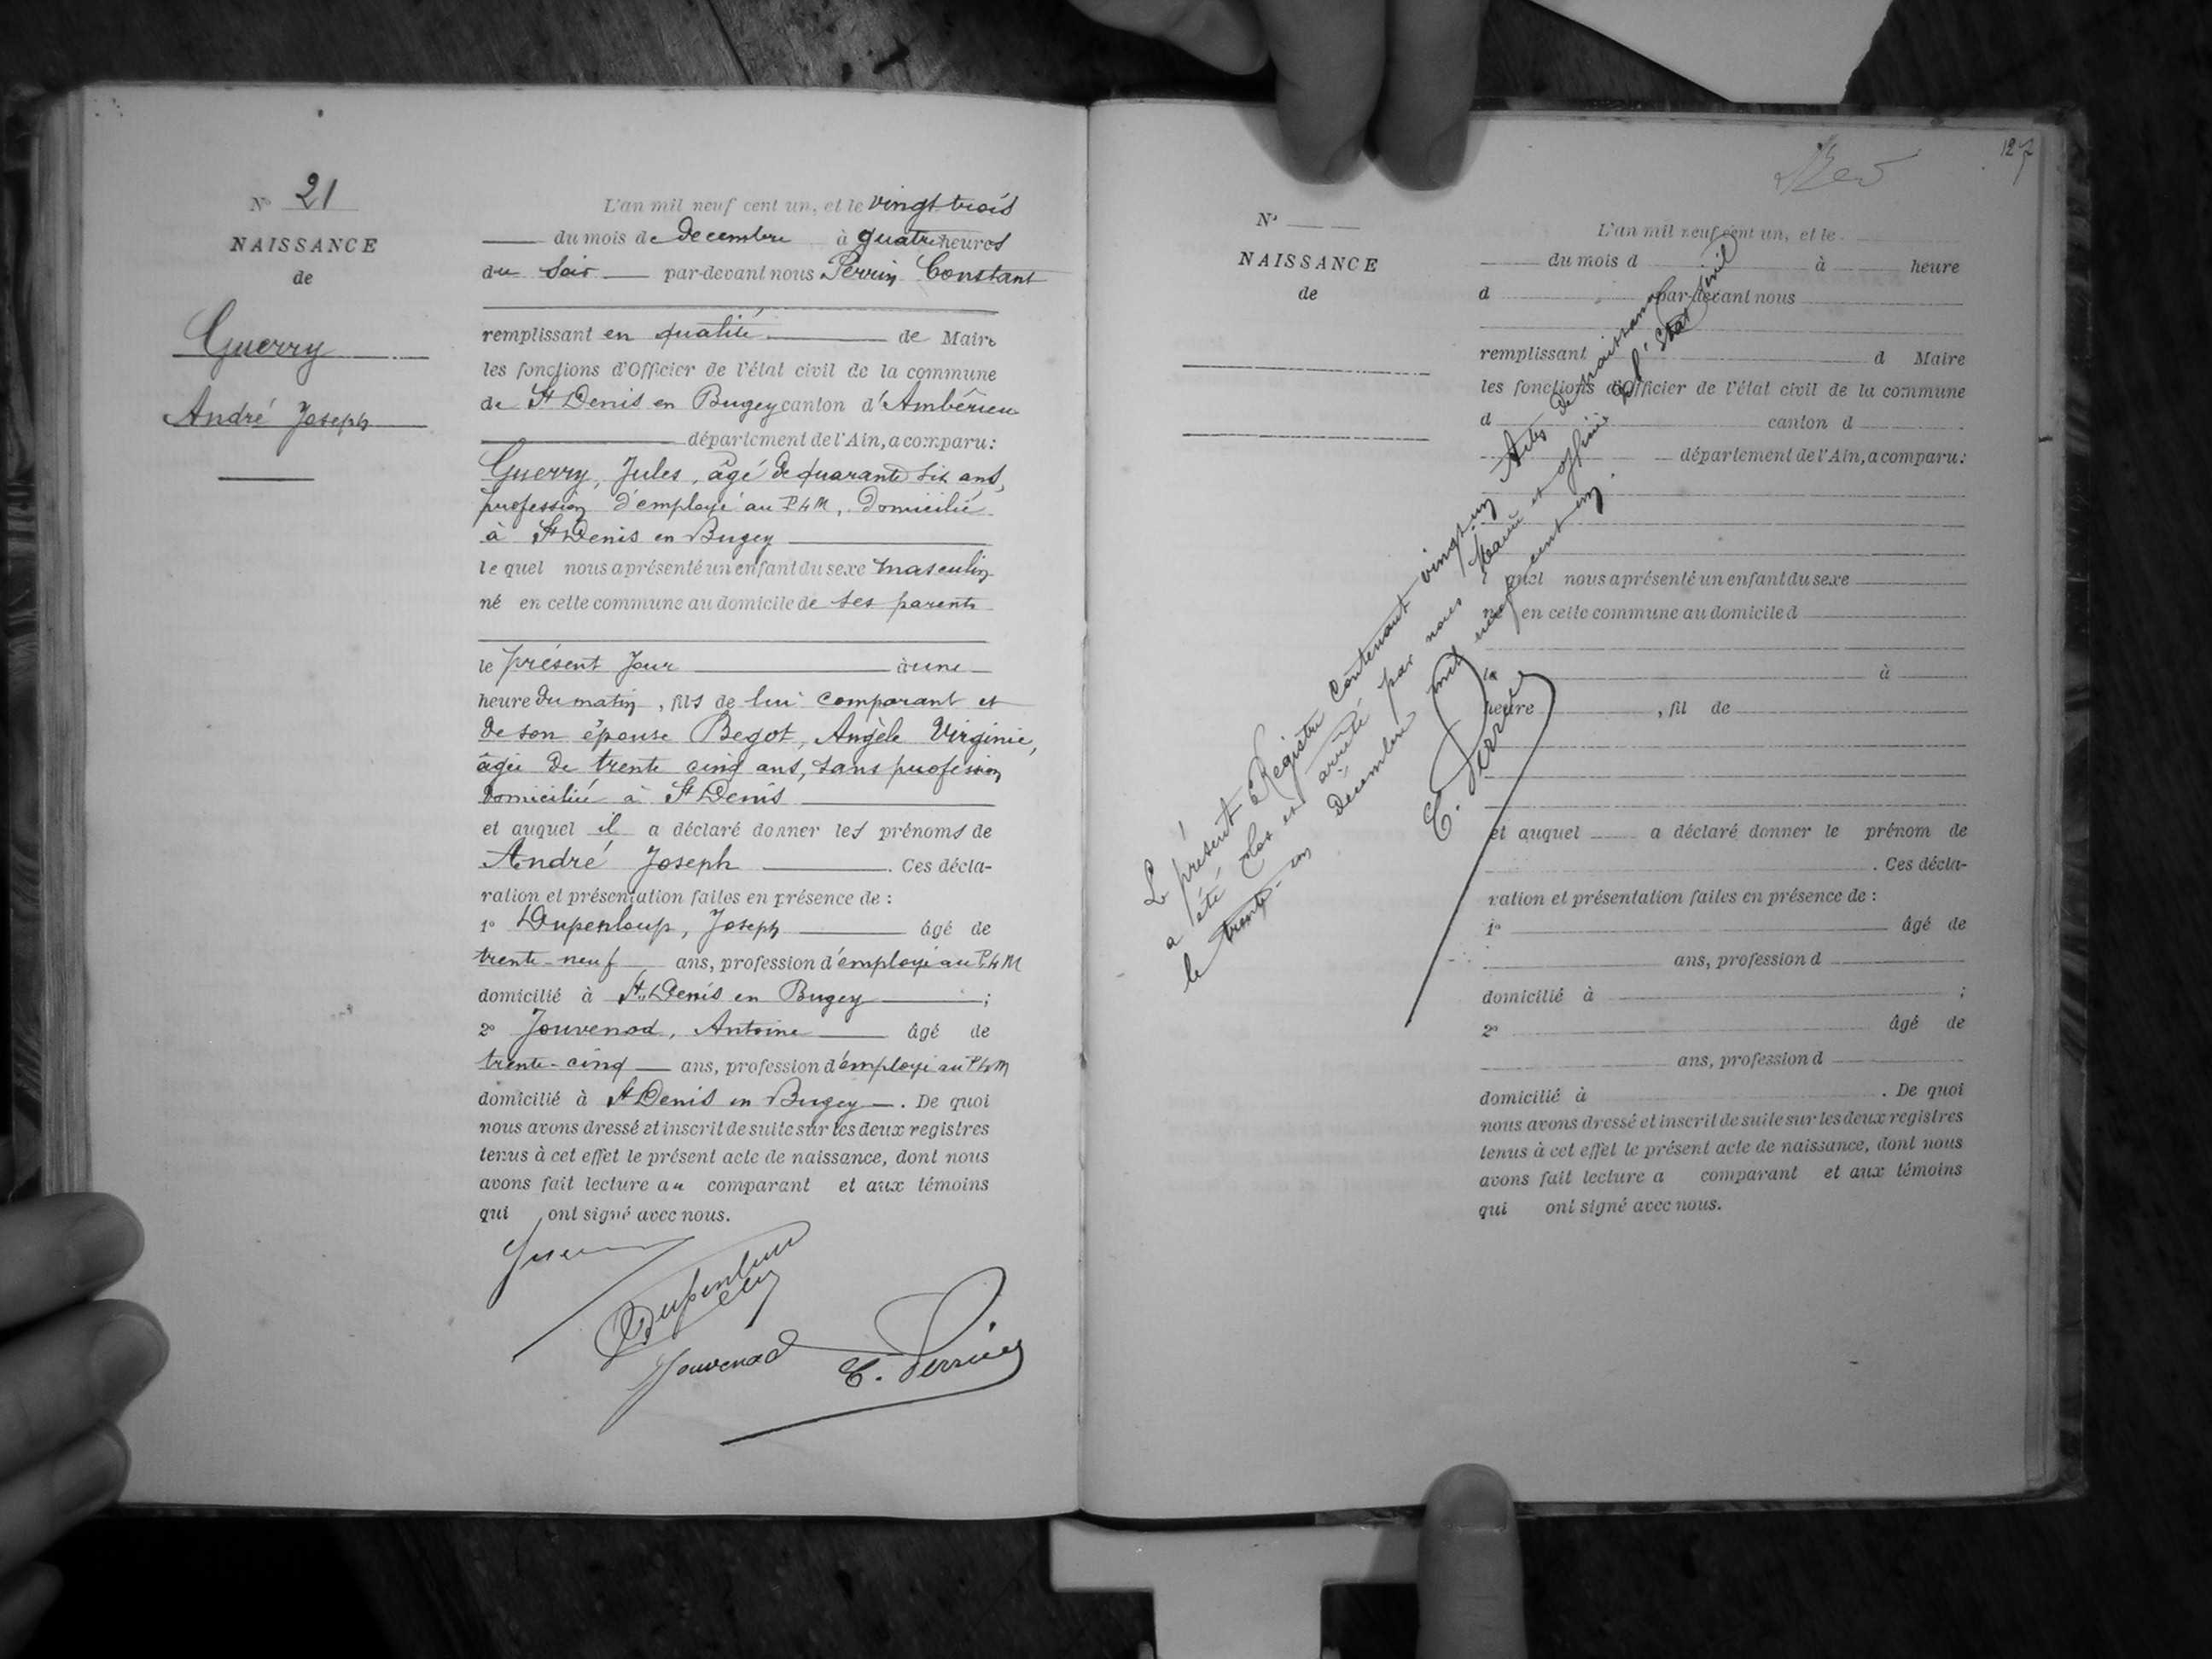 N° 21
NAISSANCE
de
Guerry
André Joseph
L'an mil neuf cent un, et le vingt trois
du mois de decembre à quatre heures
du soir par-devant nous Perrin Constant
remplissant en qualité de Maire
les fonctions d'Officier de l'état civil de la commune
de St Denis en Bugey canton d'Ambérieu
département de l'Ain, a comparu:
Guerry, Jules, âgé de quarante six ans,
profession d'employé au PLM, domicilié
à St Denis en Bugey
le quel nous a présenté un enfant du sexe masculin
né en cette commune au domicile de ses parents
le présent jour à une
heure du matin, fils de lui comparant et
de son épouse Begot, Angèle Virginie,
âgée de trente cinq ans, sans profession
domiciliée à St Denis
et auquel il a déclaré donner les prénoms de
André Joseph. Ces décla-
ration et présentation faites en présence de :
1° Dupenloup, Joseph âgé de
trente-neuf ans, profession d'employé au PLM
domicilié à St Denis en Bugey ;
2° Jouvenod, Antoine âgé de
trente-cinq ans, profession d'employé au PLM
domicilié à St Denis en Bugey. De quoi
nous avons dressé et inscrit de suite sur les deux registres
tenus à cet effet le présent acte de naissance, dont nous
avons fait lecture au comparant et aux témoins
qui ont signé avec nous.
Dupenloup
Jouvenod
C. Perrin
127
N°
NAISSANCE
de
L'an mil neuf cent un, et le
du mois d à heure
d par-devant nous
remplissant d Maire
les fonctions d'Officier de l'état civil de la commune
d canton d
département de l'Ain, a comparu:
quel nous a présenté un enfant du sexe
né en cette commune au domicile d
le à
heure , fil de
et auquel a déclaré donner le prénom de
. Ces décla-
ration et présentation faites en présence de :
1° âgé de
ans, profession d
domicilié à ;
2° âgé de
ans, profession d
domicilié à . De quoi
nous avons dressé et inscrit de suite sur les deux registres
tenus à cet effet le présent acte de naissance, dont nous
avons fait lecture a comparant et aux témoins
qui ont signé avec nous.
Le présent Registre contenant vingt un Actes de naissance
a été clos et arrêté par nous Maire et officier de l'Etat Civil
le trente-un décembre mil neuf cent un.
C. Perrin